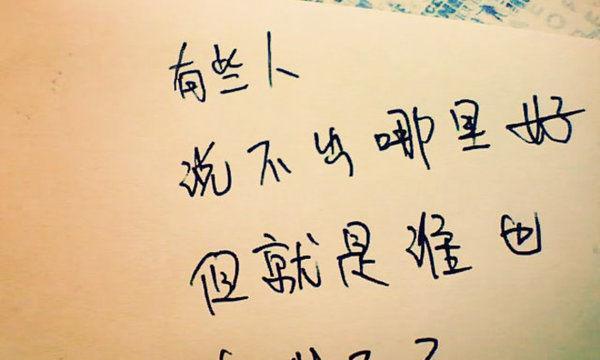 有些人
说不出哪里好
但就是谁也